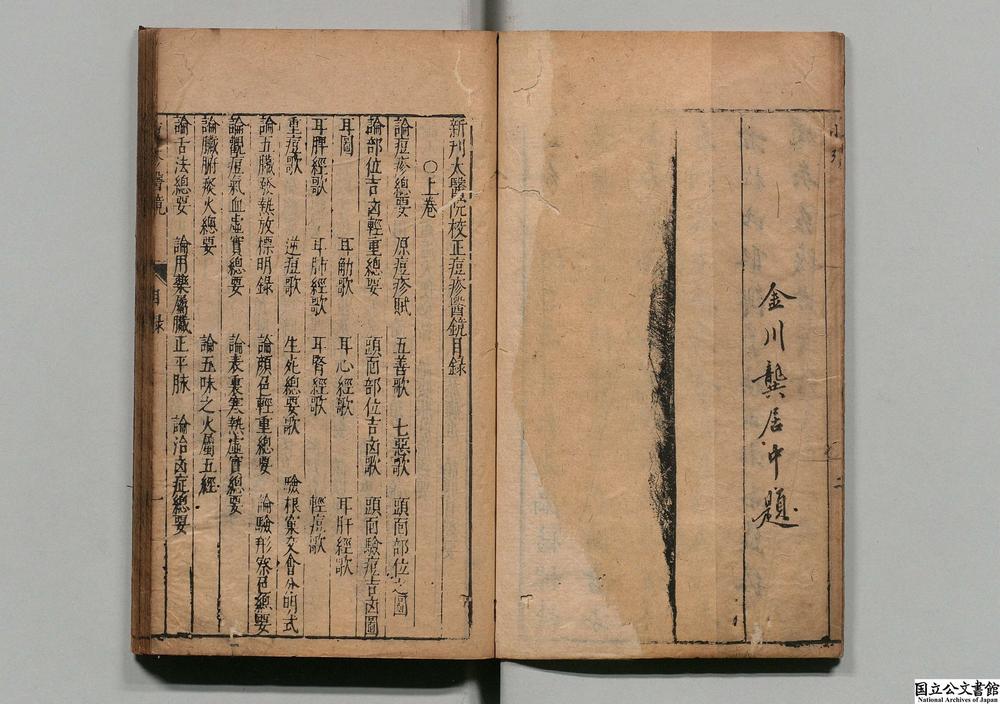 金川龔居中題
新刊太醫院校正痘疹醫鏡目錄
○上卷
論痘疹總要 原痘疹賦 五善歌 七惡歌 頭面部位之圖
論部位吉凶輕重總要 頭面部位吉凶歌 頭面驗痘吉凶圖
耳圖 耳觔歌 耳心經歌 耳肝經歌
耳脾經歌 耳肺經歌 耳腎經歌 輕痘歌
重痘歌 逆痘歌 生死總要歌 驗根窠交會分明式
論五臟發熱放標明錄 論顏色輕重總要 論驗形察色總要
論觀痘氣血虛實總要 論表裏寒熱虛實總要
論臟腑痰火總要 論五味之火屬五經
論舌法總要 論用藥屬臟正平脉 論治凶症總要
醫鏡 目錄
国立公文書館
National Archives of Japan